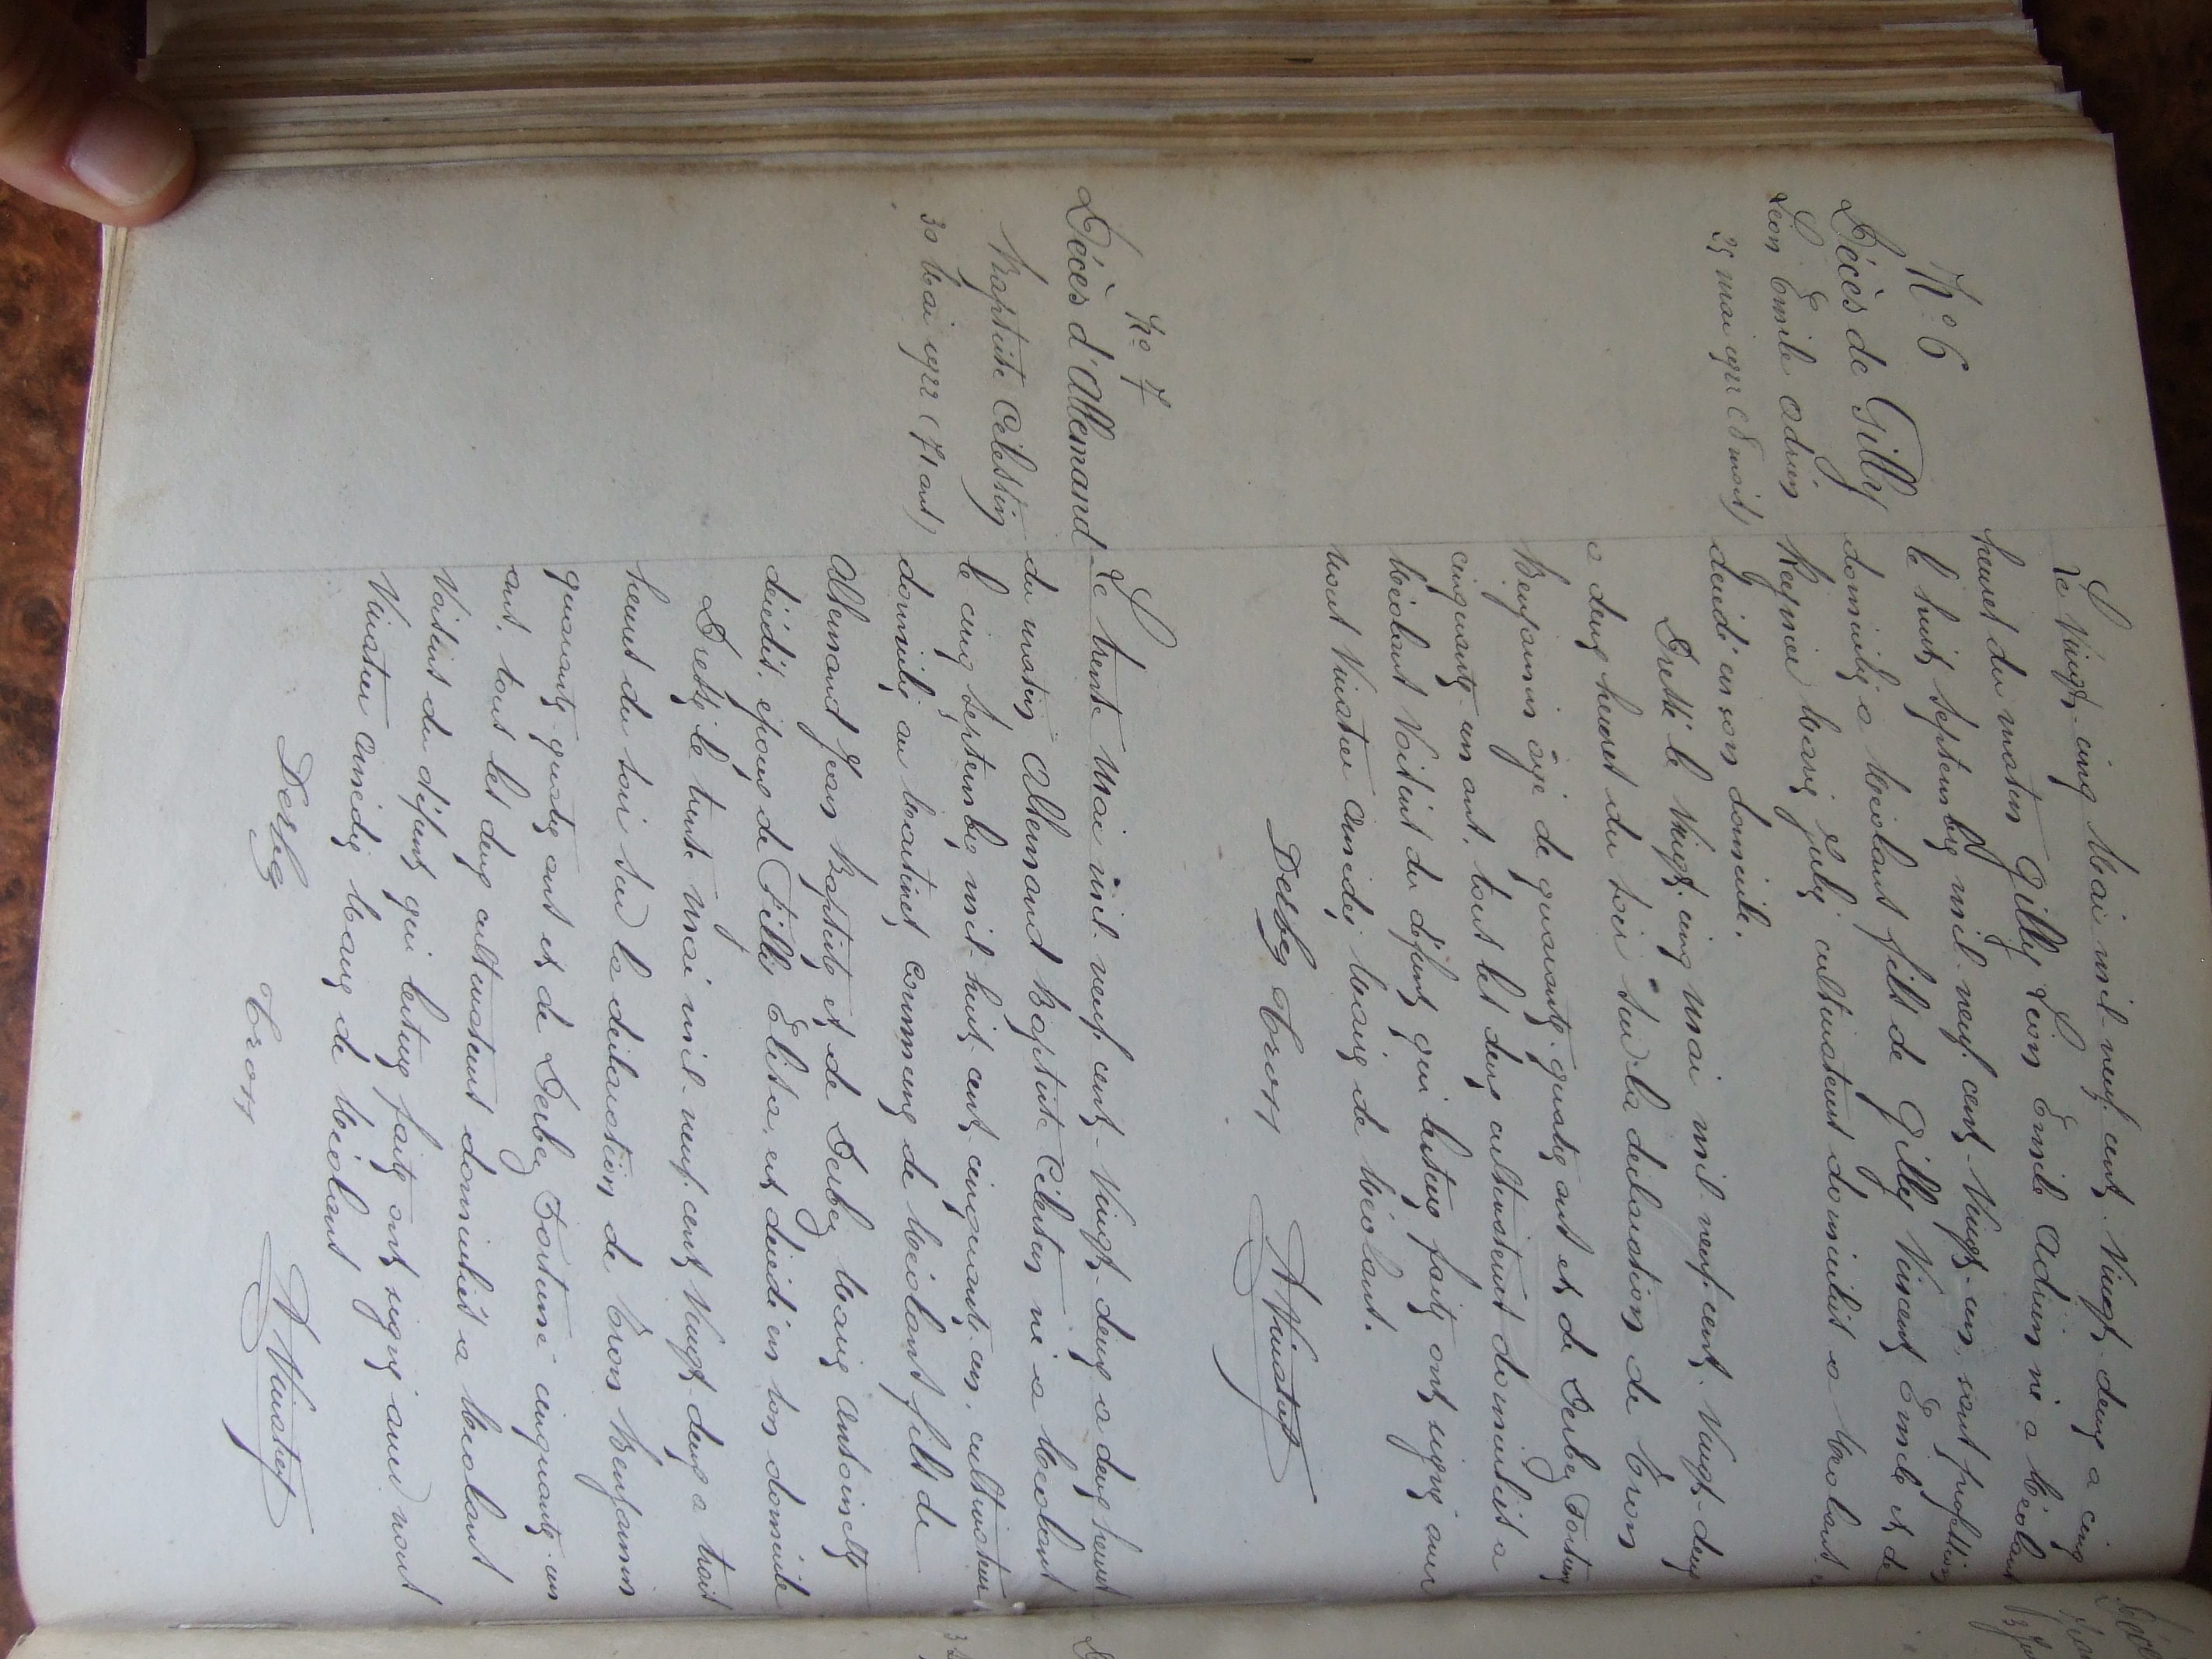 N° 6
Décès de Gilly
Léon Emile Adrien
25 mai 1922 (8 mois)
Le Vingt-cinq Mai mil-neuf-cent-Vingt-deux a cinq
heures du matin Gilly Léon Emile Adrien né a Méolans
le huit septembre mil-neuf-cent-Vingt-un, sans profession
domicilié a Méolans fils de Gilly Vincent Emile et de
Reynier Marie Julie cultivateurs domiciliés a Méolans est
décédé en son domicile.
Dressé le Vingt-cinq mai mil-neuf-cent-Vingt-deux
a deux heures du soir Sur la déclaration de Tron
Benjamin âgé de quarante-quatre ans et de Derbez Fortuné
cinquante-un ans, tous les deux cultivateurs domiciliés a
Méolans Voisins du défunt qui lecture faite ont signé avec
nous Vinatier Amédée Maire de Méolans.
Derbez Tron A Vinatier
N° 7
Décès d'Allemand
Baptiste Célestin
30 Mai 1922 (71 ans)
Le trente Mai mil-neuf-cent-Vingt-deux a deux heures
du matin Allemand Baptiste Célestin né a Méolans
le cinq septembre mil-huit-cent-cinquante-un, cultivateur
domicilié au Martinet commune de Méolans fils de
Allemand Jean Baptiste et de Derbez Marie Antoinette
décédés, époux de Fellis Elisa, est décédé en son domicile
Dressé le trente Mai mil-neuf-cent-Vingt-deux a trois
heures du soir Sur la déclaration de Tron Benjamin
quarante-quatre ans et de Derbez Fortuné cinquante-un
ans, tous les deux cultivateurs domiciliés a Méolans
Voisins du défunt qui lecture faite ont signé avec nous
Vinatier Amédée Maire de Méolans
Derbez Tron A Vinatier